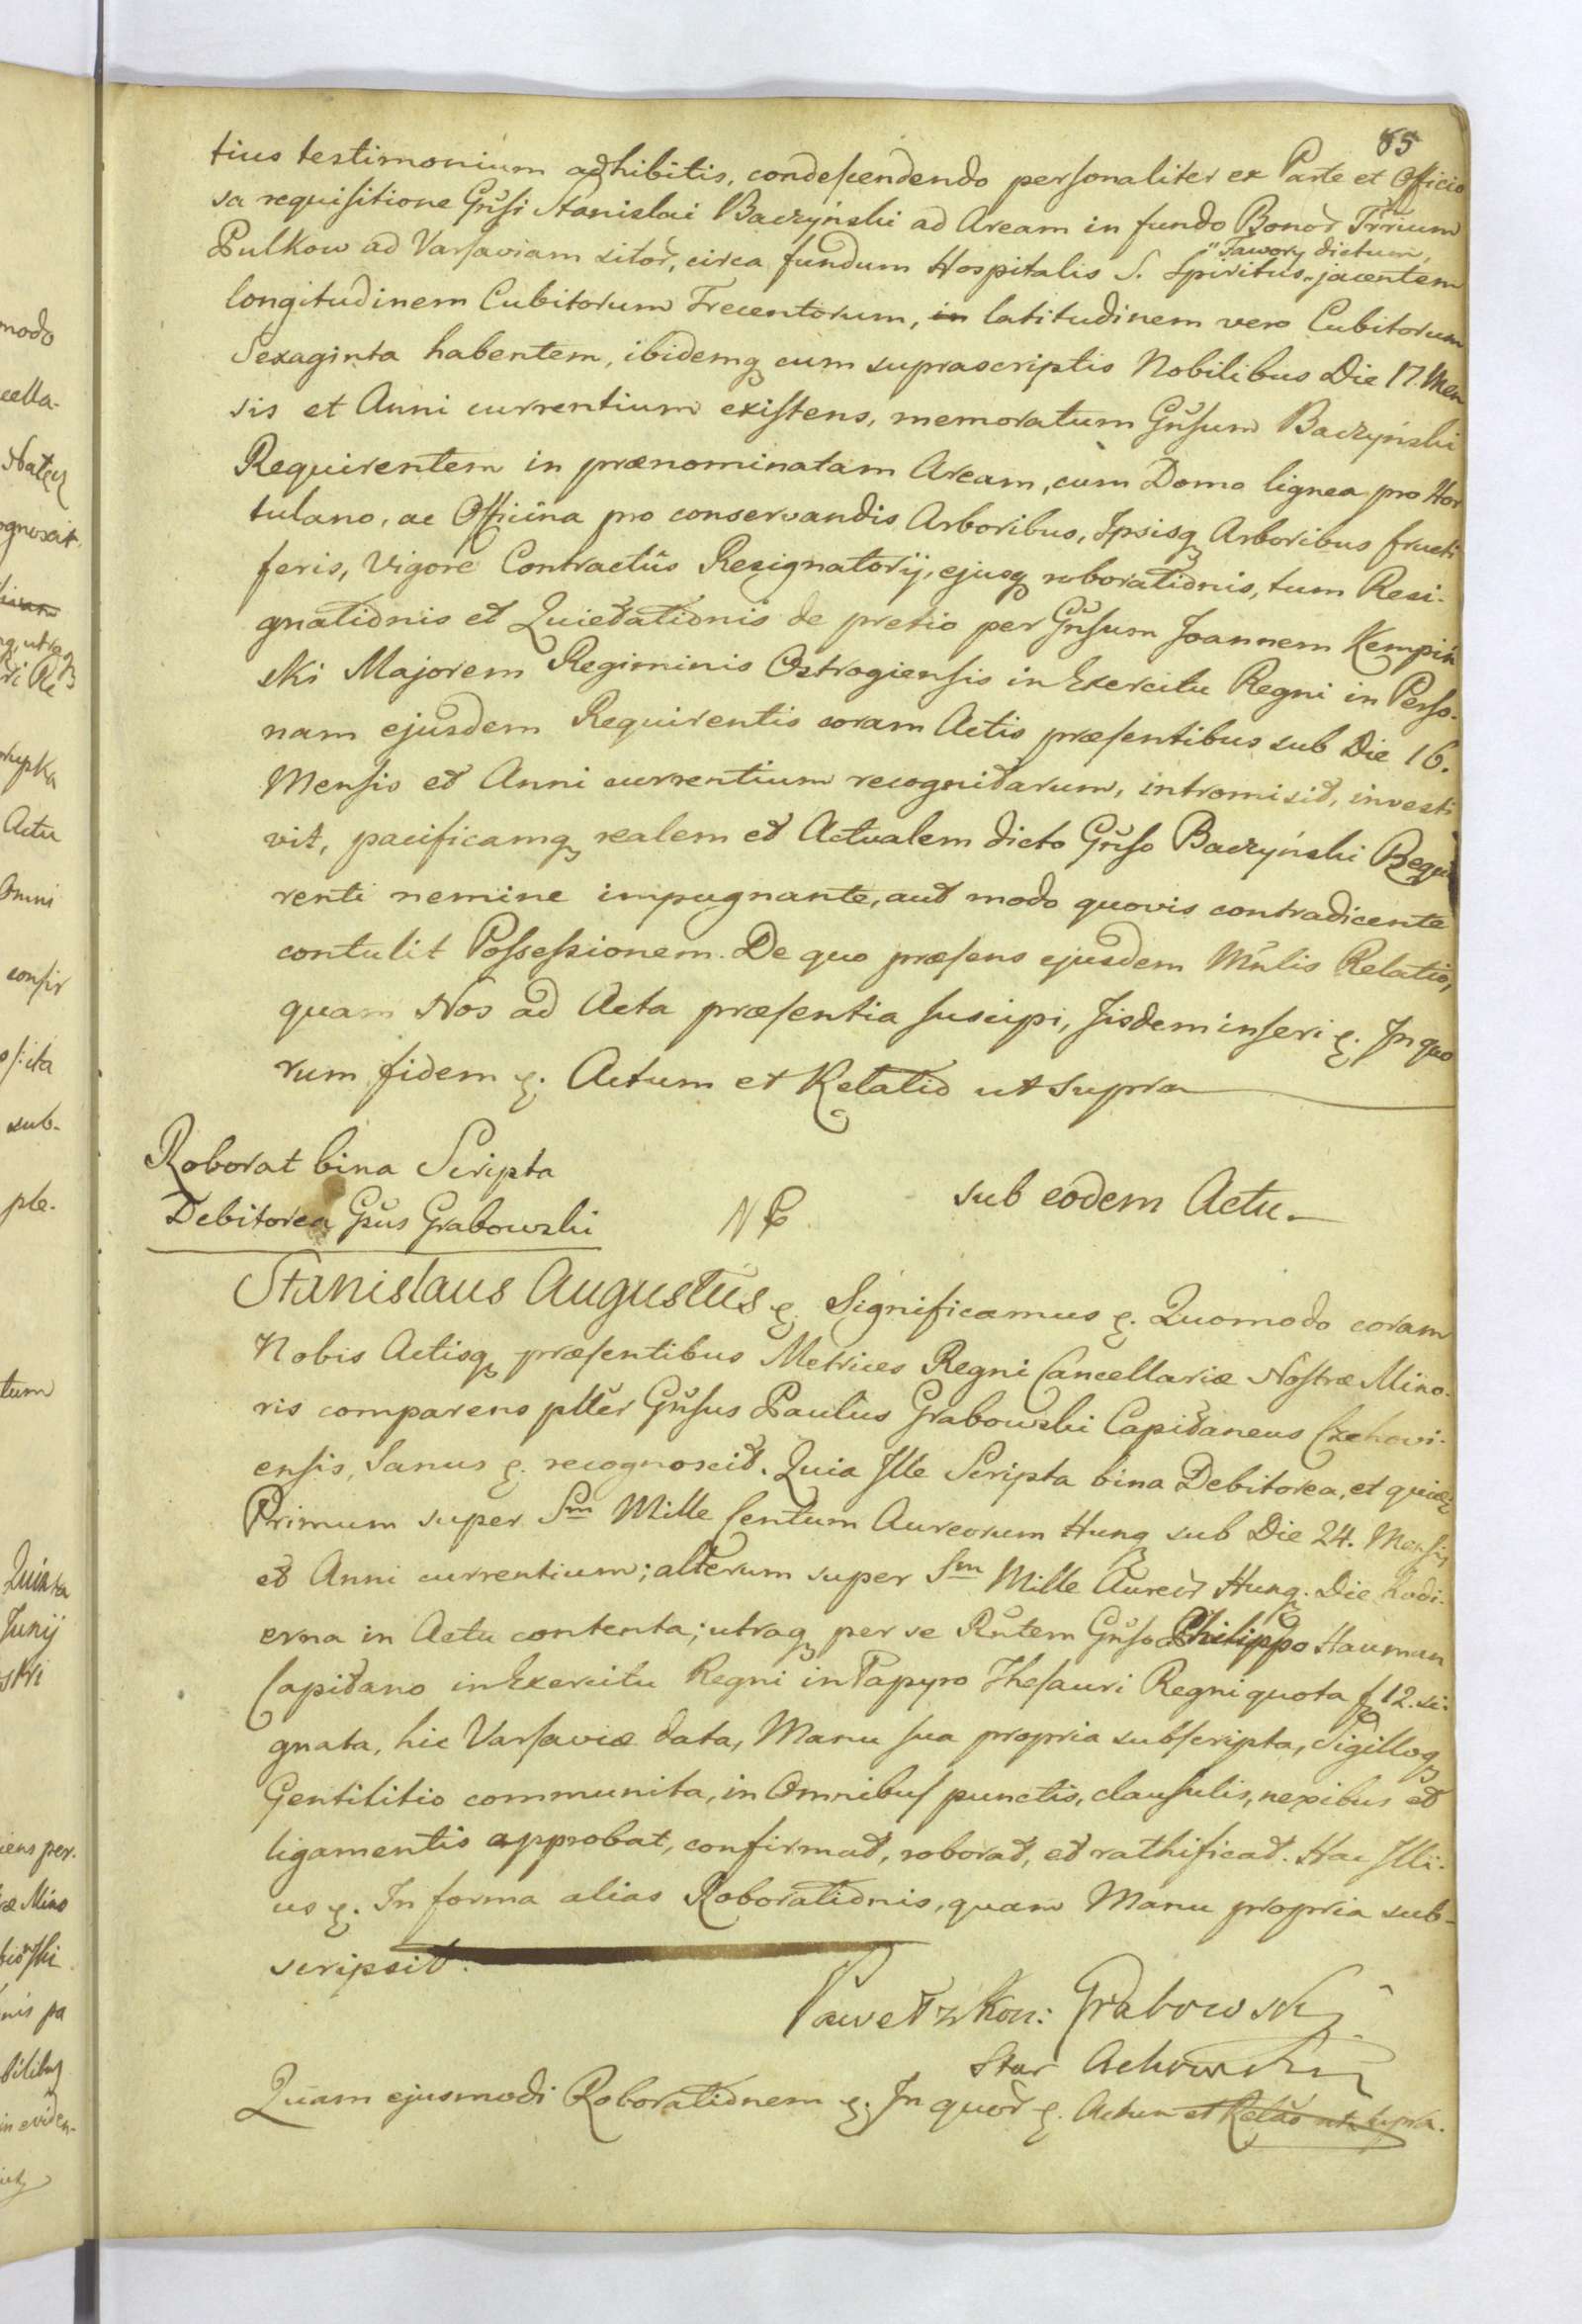 85
tius testimonium adhibitis, condescendendo personaliter ex Parte et Officio
sa requisitione Gnsi Stanislai Baczyński ad Aream in fundo Bonor Trrium
"Fawory dictum,
Pulkow ad Varsaviam sitor, circa fundum Hospitalis S. Spiritus" jacentem
longitudinem Cubitorum Trecentorum, in latitudinem vero Cubitorum
Sexaginta habentem, ibidemq cum suprascriptis Nobilibus Die 17. Men
sis et Anni currentium existens, memoratum Gnsum Baczyński
Requirentem in prænominatam Aream, cum Domo lignea pro Hor
tulano, ac Officina pro conservandis Arboribus, Ipsisq Arboribus fructi
feris, Vigore Contractûs Resignatorij, ejusq roborationis, tum Resi-
gnationis et Quietationis de pretio per Gnsum Joannem Kempiń
ski Majorem Regiminis Ostrogiensis in Exercitu Regni in Perso-
nam ejusdem Requirentis coram Actis præsentibus sub Die 16.
Mensis et Anni currentium recognitarum, intromisit, investi
vit, pacificamq realem et Actualem dicto Gnso Baczyński Requi
renti nemine impugnante, aut modo quovis contradicente
contulit Possessionem. De quo præsens ejusdem Mnlis Relatio,
quam Nos ad Acta præsentia suscipi, Jisdem inseri &. In quo
rum fidem &. Actum et Relatio ut supra
Roborat bina Scripta
Debitorea Gsus Grabowski
sub eodem Actu.
Stanislaus Augustus &. Significamus &. Quomodo coram
Nobis Actisq præsentibus Metrices Regni Cancellariæ Nostræ Mino-
ris comparens pller Gnsus Paulus Grabowski Capitaneus Czchovi-
ensis, Sanus &. recognoscit. Quia Ille Scripta bina Debitorea, et quidẽ
Primum super Sm Mille Centum Aureorum Hung sub Die 24. Mensis
et Anni currentium; alterum super Sm Mille Aureor Hung. Die hodi-
erna in Actu contenta; utraq per se Rntem Gnso Philippo Hauman
Capitano in Exercitu Regni in Papyro Thesauri Regni quota f 12. si-
gnata, hic Varsaviæ data, Manu sua propria subscripta, Sigilloq
Gentilitio communita, in Omnibus punctis, clausulis, nexibus et
ligamentis approbat, confirmat, roborat, et rathificat. Hac Illi-
us &. In forma alias Roborationis, quam Manu propria sub-
scripsit.
Paweł z Kon: Grabowski
Star Czchowski
Quam ejusmodi Roborationem &. In quor &. Actum et Relao ut supra.